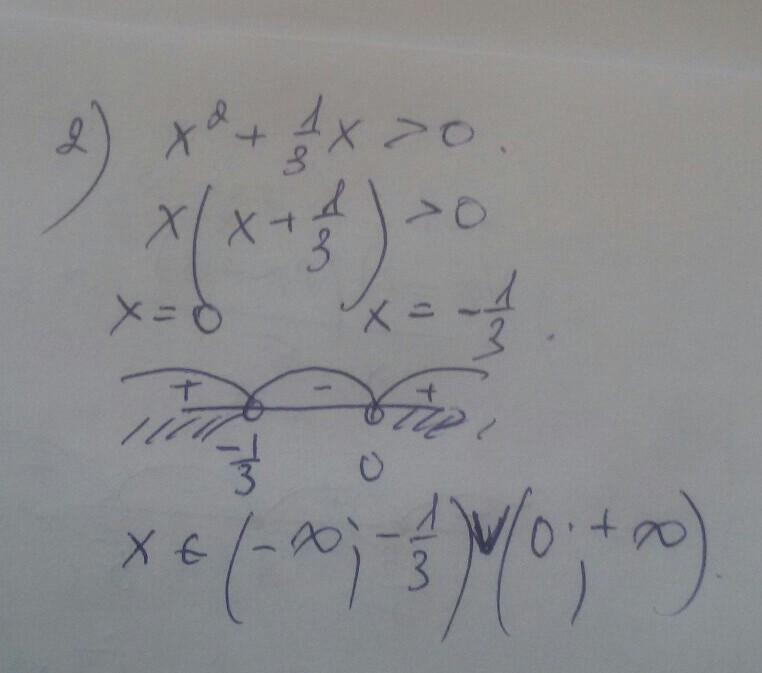 2) x² + 1/3 x > 0.
x(x + 1/3) > 0
x = 0 x = -1/3.
+ - +
-1/3 0
x ∈ (-∞; -1/3) ∨ (0; +∞).